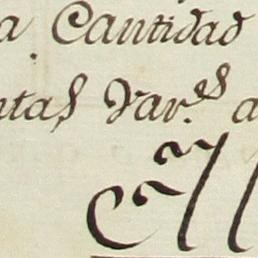 a Cantidad
ntas Var.es a